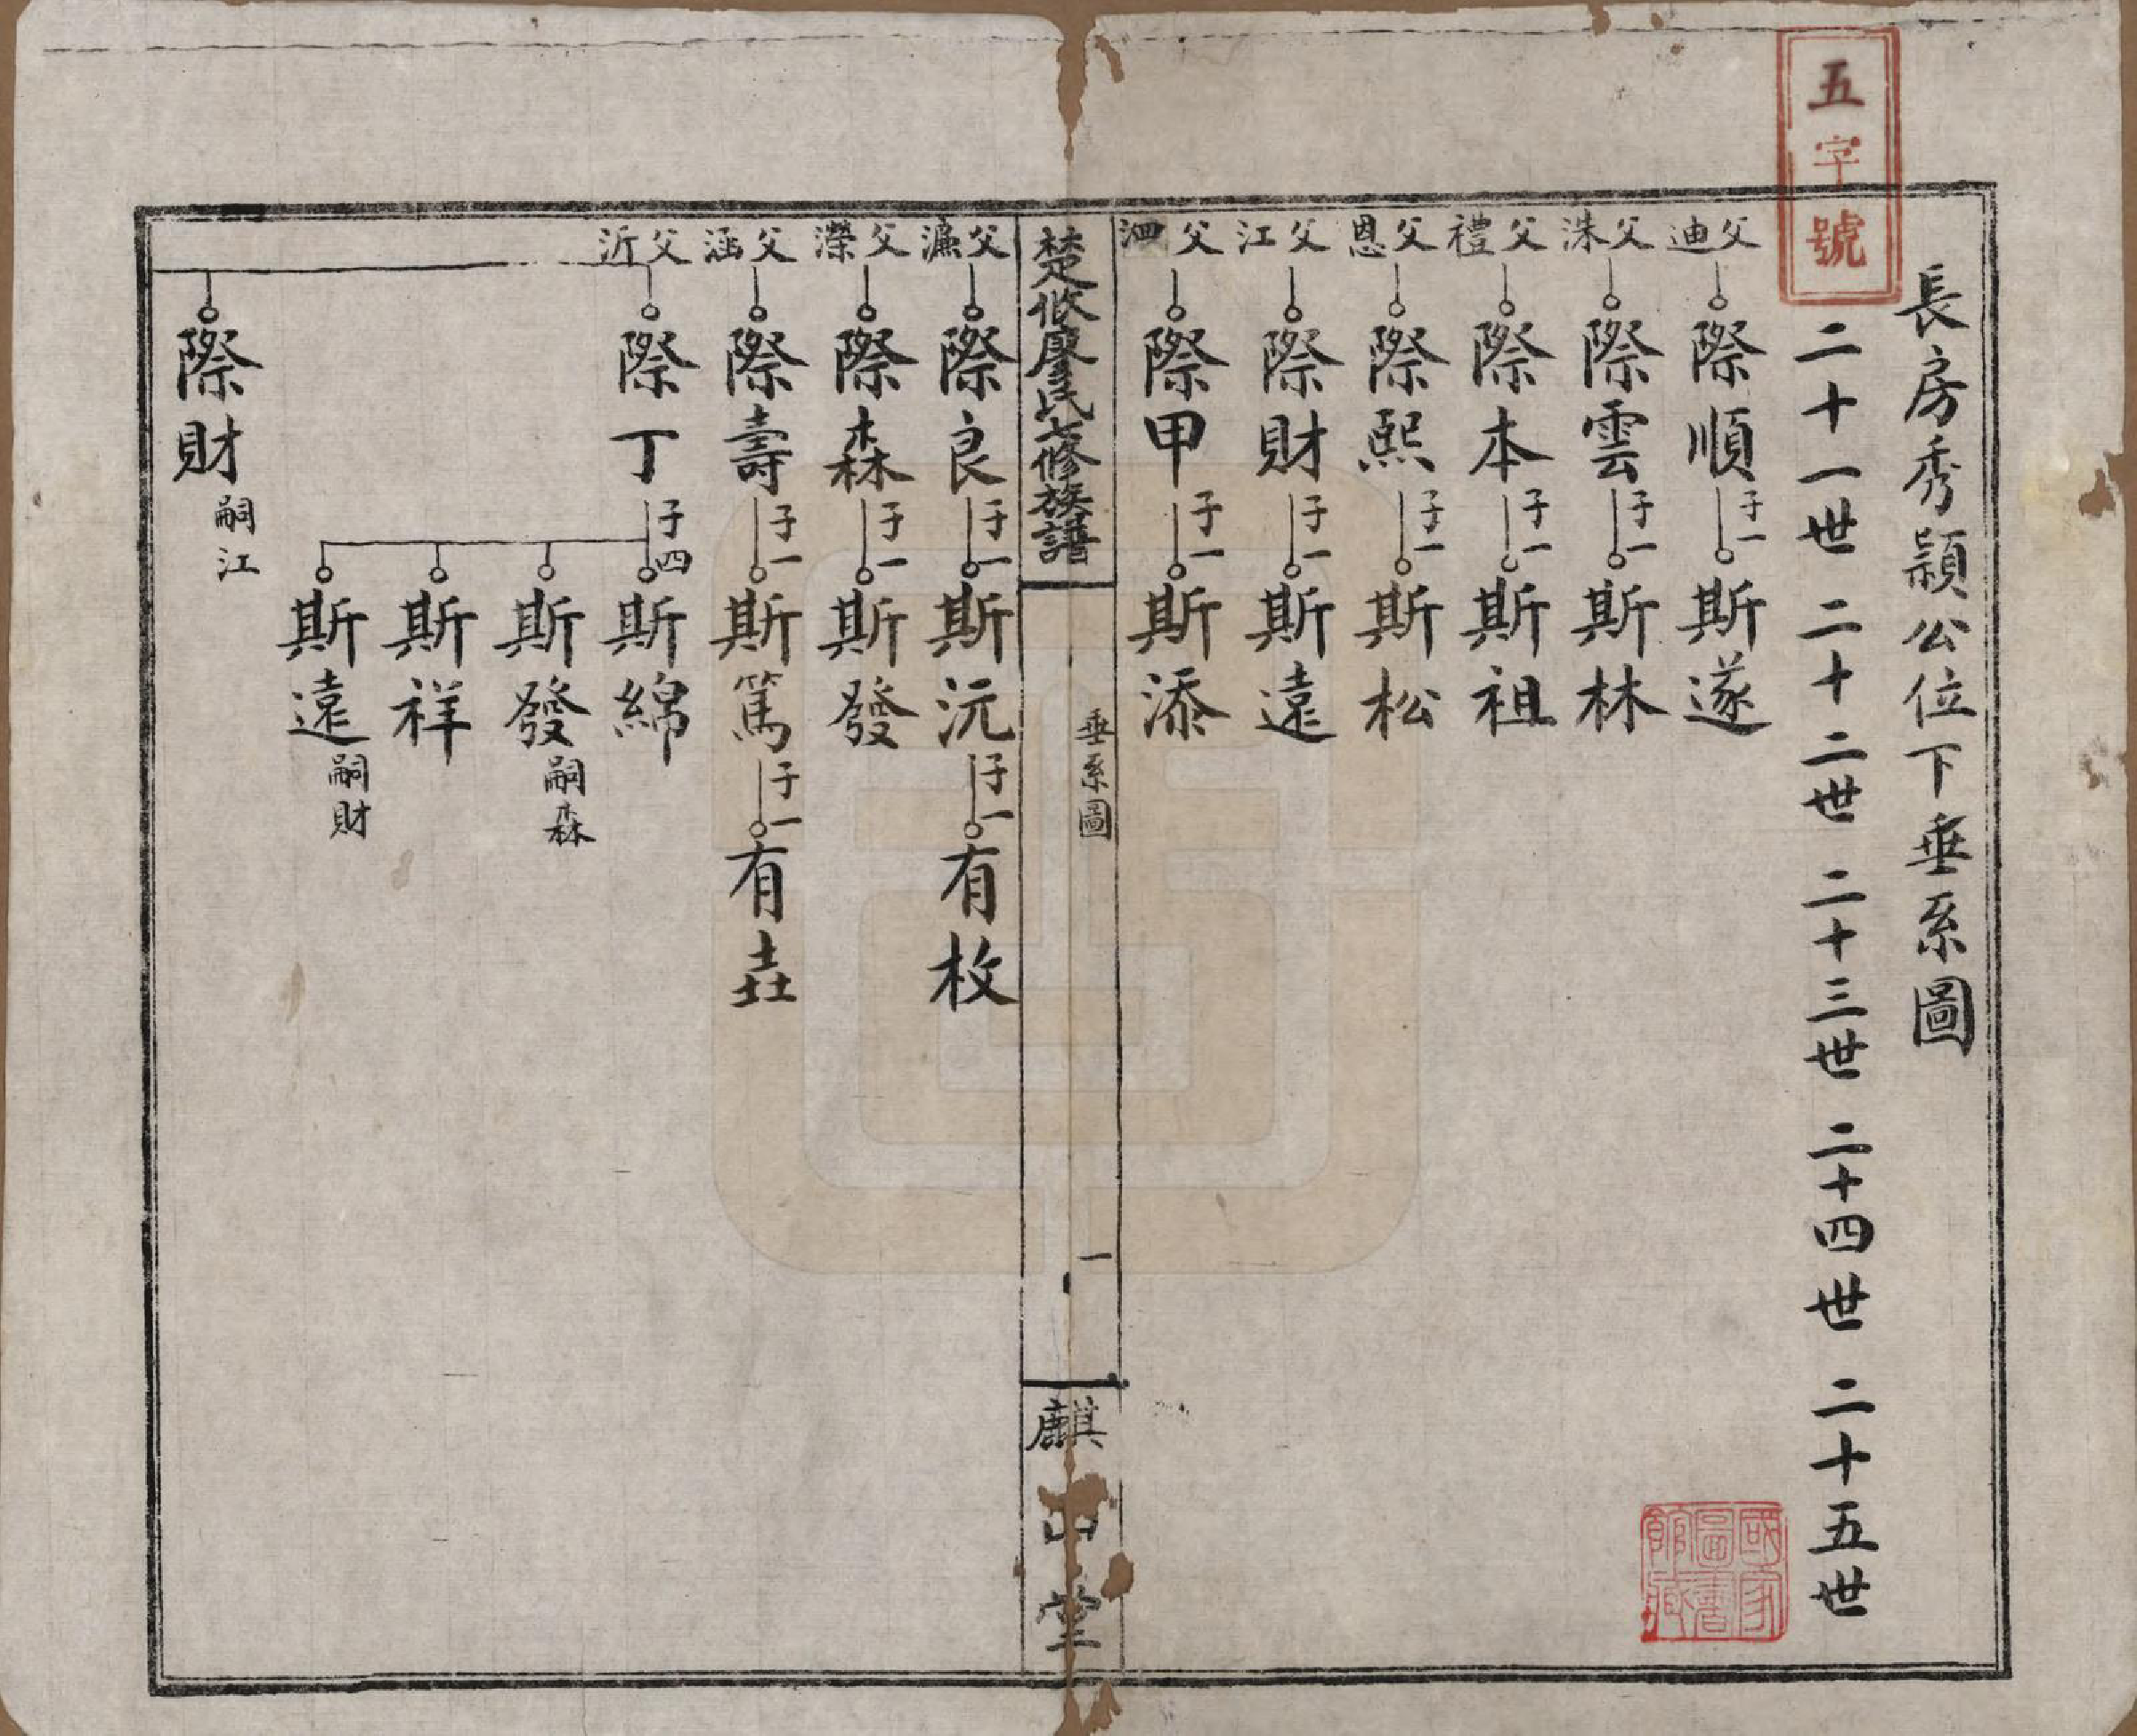 五字號
長房秀潁公位下垂系圖
二十一世 二十二世 二十三世 二十四世 二十五世
父迪 際順 子一 斯遂
父洙 際雲 子一 斯林
父禮 際本 子一 斯祖
父恩 際熙 子一 斯松
父江 際財 子一 斯遠
父泗 際甲 子一 斯添
楚攸廖氏七修族譜
垂系圖
一
麒山堂
父濂 際良 子一 斯沅 子一 有枚
父濼 際森 子一 斯發
父涵 際壽 子一 斯篤 子一 有壵
父近 際丁 子四 斯綿
斯發 嗣森
斯祥
斯遠 嗣財
際財 嗣江
國家圖書館藏